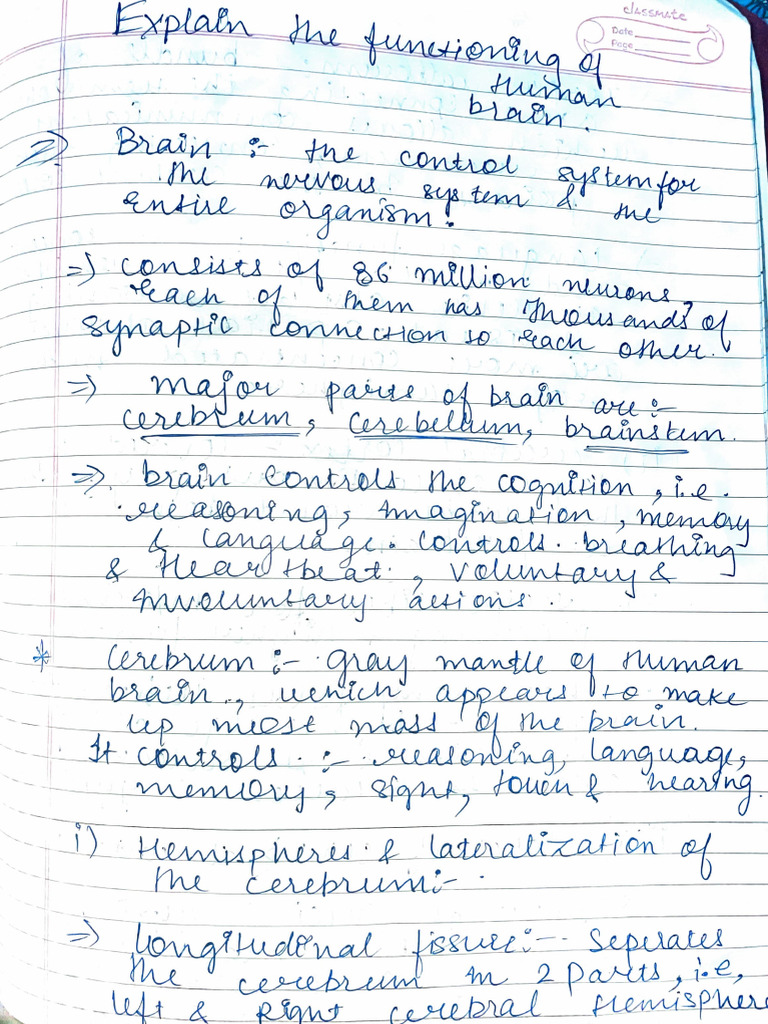 classmate
Date
Page
Explain the functioning of
Human
brain.
⇒ Brain :- the control system for
the nervous system & the
entire organism.
⇒ consists of 86 million neurons,
each of them has thousands of
synaptic connection to each other.
⇒ major parts of brain are :-
cerebrum, cerebellum, brainstem.
⇒ brain controls the cognition, i.e.
reasoning, imagination, memory
& language. controls breathing
& Heartbeat, voluntary &
involuntary actions.
* Cerebrum :- gray mantle of Human
brain, which appears to make
up most mass of the brain.
It controls :- reasoning, language,
memory, sight, touch & hearing.
i) Hemispheres & lateralization of
the cerebrum:-
⇒ longitudinal fissure:- Seperates
the cerebrum in 2 parts, i.e,
left & Right cerebral Hemisphere